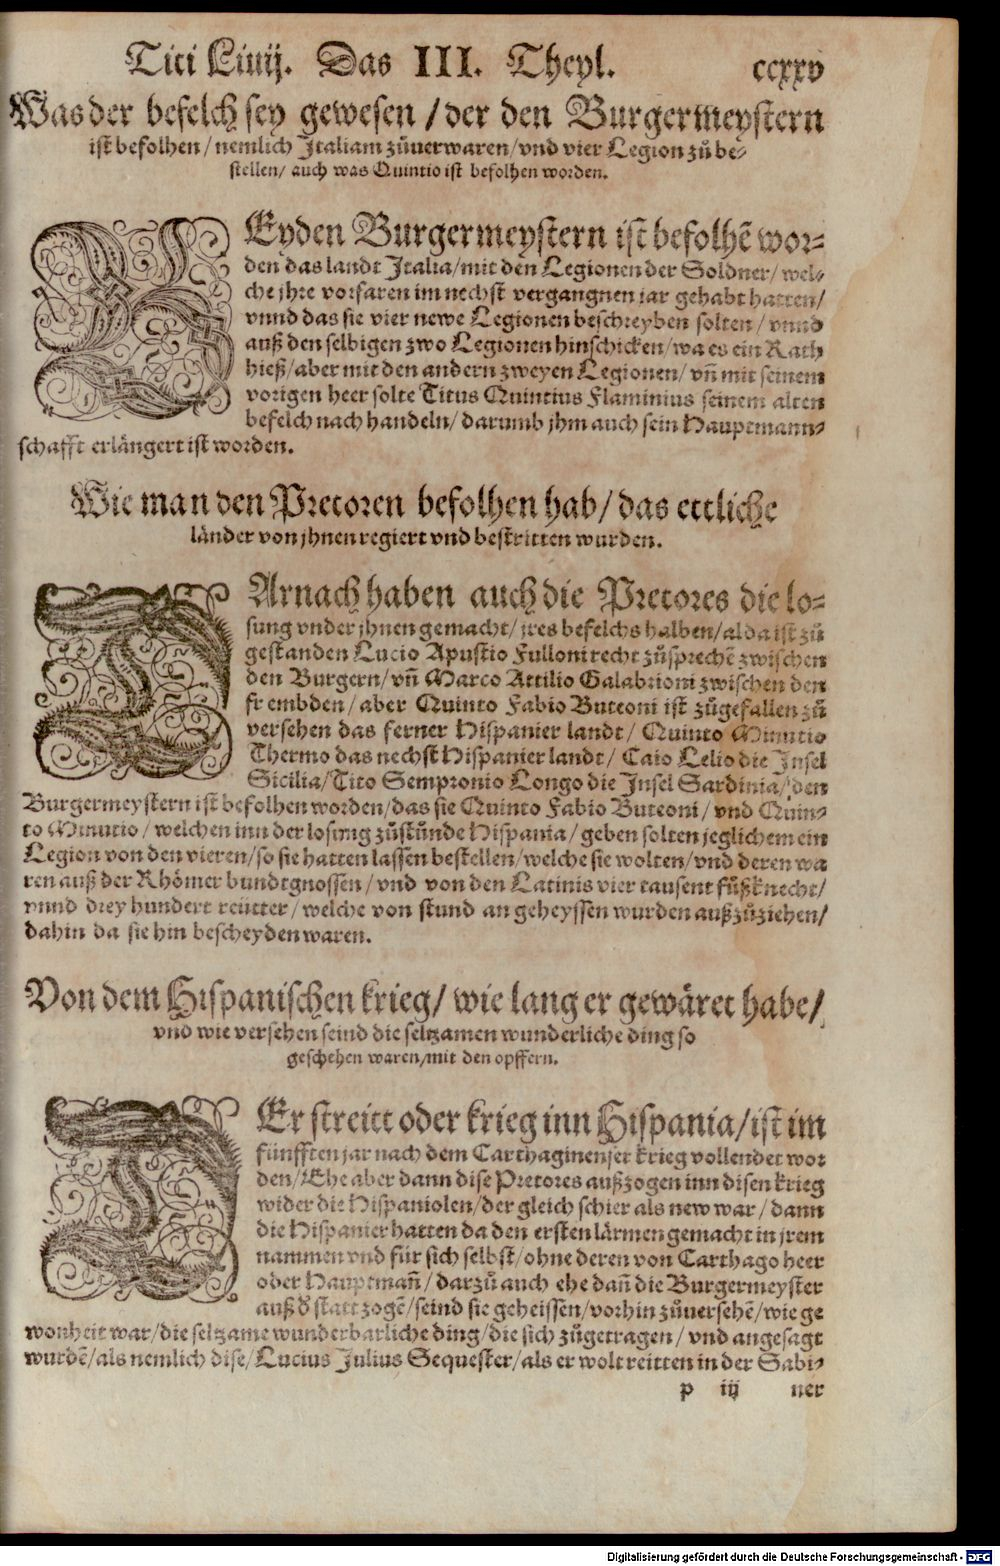 Titi Liuij. Das III. Theyl. ccxxv
Was der befelch sey gewesen / der den Burgermeystern
ist befolhen / nemlich Italiam zůuerwaren / vnd vier Legion zů be-
stellen / auch was Quintio ist befolhen worden.
BEyden Burgermeystern ist befolhẽ wor-
den das landt Italia / mit den Legionen der Soldner / wel-
che jhre vorfaren im nechst vergangnen jar gehabt hatten /
vnnd das sie vier newe Legionen beschreyben solten / vnnd
auß den selbigen zwo Legionen hinschicken / wa es ein Rath
hieß / aber mit den andern zweyen Legionen / vñ mit seinem
vorigen heer solte Titus Quintius Flaminius seinem alten
befelch nach handeln / darumb jhm auch sein Hauptmann-
schafft erlängert ist worden.
Wie man den Pretoren befolhen hab / das ettliche
länder von jhnen regiert vnd bestritten wurden.
DArnach haben auch die Pretores die lo-
sung vnder jhnen gemacht / jres befelchs halben / alda ist zů
gestanden Lucio Apustio Fulloni recht zůsprechẽ zwischen
den Burgern / vñ Marco Attilio Galabrioni zwischen den
frembden / aber Quinto Fabio Buteoni ist zůgefallen zů
versehen das ferner Hispanier landt / Quinto Minutio
Thermo das nechst Hispanier landt / Caio Lelio die Insel
Sicilia / Tito Sempronio Longo die Insel Sardinia / den
Burgermeystern ist befolhen worden / das sie Quinto Fabio Buteoni / vnd Quin-
to Minutio / welchen inn der losung zůstůnde Hispania / geben solten jeglichem ein
Legion von den vieren / so sie hatten lassen bestellen / welche sie wolten / vnd deren wa
ren auß der Rhömer bundtgnossen / vnd von den Latinis vier tausent fůßknecht /
vnnd drey hundert reütter / welche von stund an geheyssen wurden außzůziehen /
dahin da sie hin bescheyden waren.
Von dem Hispanischen krieg / wie lang er gewäret habe /
vnd wie versehen seind die seltzamen wunderliche ding so
geschehen waren / mit den opffern.
DEr streitt oder krieg inn Hispania / ist im
fünfften jar nach dem Carthaginenser krieg vollendet wor
den / Ehe aber dann dise Pretores außzogen inn disen krieg
wider die Hispaniolen / der gleich schier als new war / dann
die Hispanier hatten da den ersten lärmen gemacht in jrem
nammen vnd für sich selbst / ohne deren von Carthago heer
oder Hauptmañ / darzů auch ehe dañ die Burgermeyster
auß d̃ statt zogẽ / seind sie geheissen / vorhin zůuersehẽ / wie ge
wonheit war / die seltzame wunderbarliche ding / die sich zůgetragen / vnd angesagt
wurdẽ / als nemlich dise / Lucius Julius Sequester / als er wolt reitten in der Sabi-
p iij ner
Digitalisierung gefördert durch die Deutsche Forschungsgemeinschaft - DFG